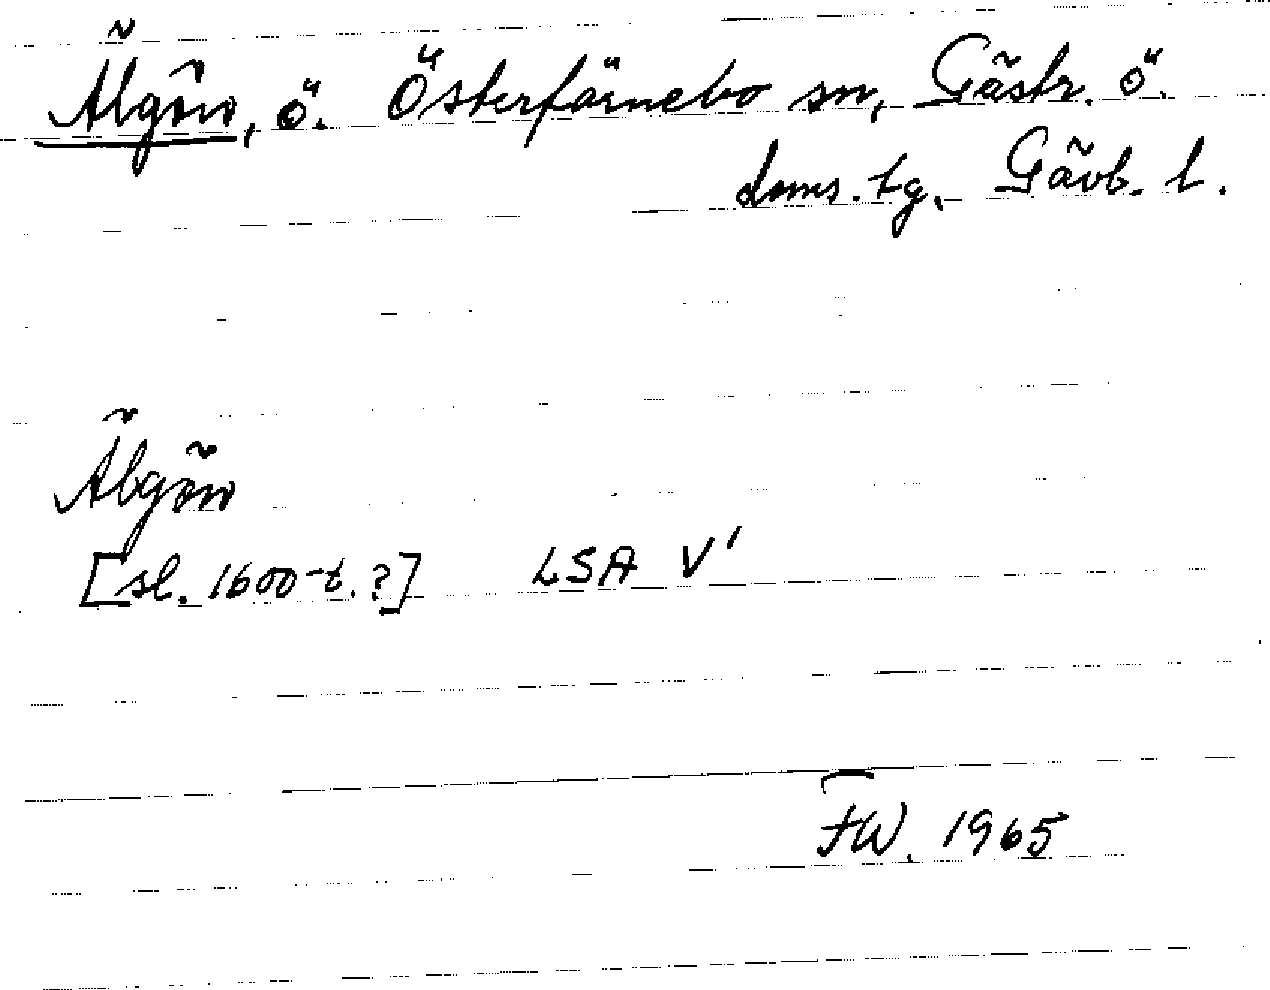 Älgön, ö. Österfärnebo sn, Gästr. ö.
doms. tg. Gävb. l.
Älgön
[sl. 1600-t.?] LSA V'
FW. 1965